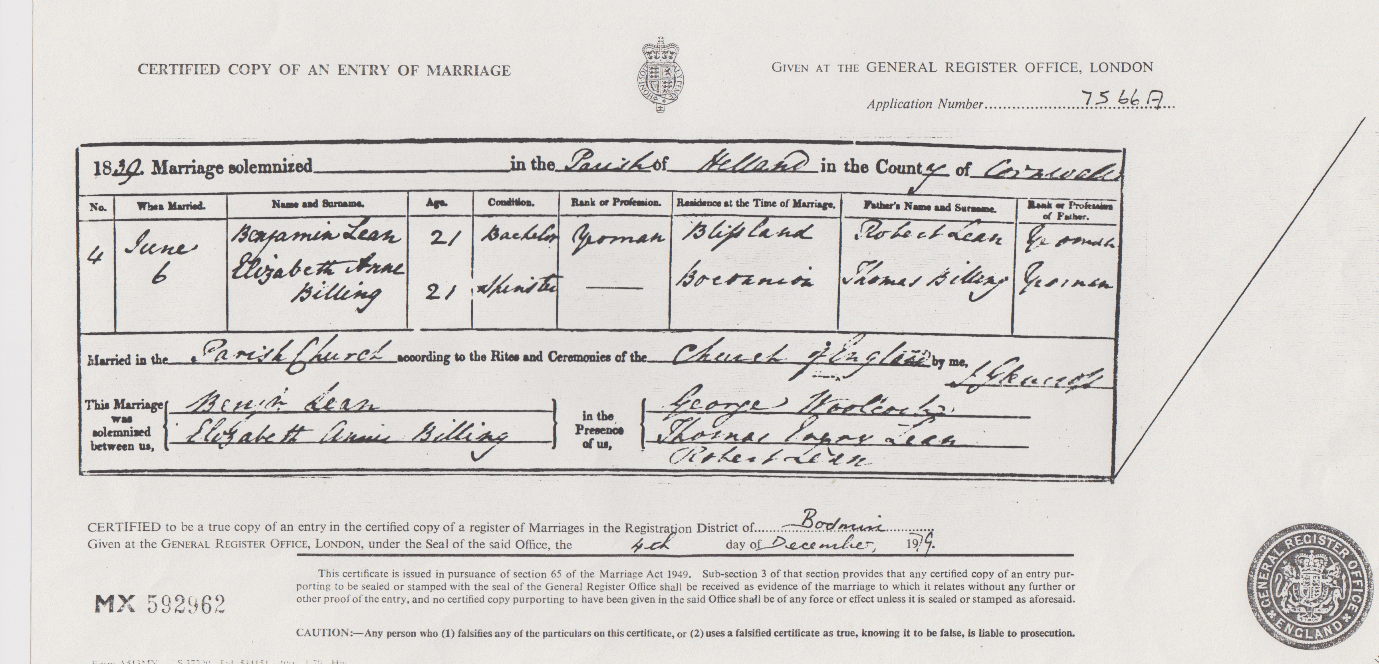 CERTIFIED COPY OF AN ENTRY OF MARRIAGE
GIVEN AT THE GENERAL REGISTER OFFICE, LONDON
Application Number 7566A
1839. Marriage solemnized in the Parish of Helland in the County of Cornwall
No. When Married. Name and Surname. Age. Condition. Rank or Profession. Residence at the Time of Marriage. Father's Name and Surname. Rank or Profession of Father.
4 June 6 Benjamin Lean 21 Bachelor Yeoman Blisland Robert Lean Yeoman
Elizabeth Anne Billing 21 Spinster —— Thomas Billing Yeoman
Married in the Parish Church according to the Rites and Ceremonies of the Church of England by me,
This Marriage was solemnized between us, Benjn. Lean
Elizabeth Annie Billing
in the Presence of us, George Woolcock
Thomas Lean
Robert Lean
CERTIFIED to be a true copy of an entry in the certified copy of a register of Marriages in the Registration District of Bodmin
Given at the GENERAL REGISTER OFFICE, LONDON, under the Seal of the said Office, the 4th day of December, 1979.
This certificate is issued in pursuance of section 65 of the Marriage Act 1949. Sub-section 3 of that section provides that any certified copy of an entry pur-
porting to be sealed or stamped with the seal of the General Register Office shall be received as evidence of the marriage to which it relates without any further or
other proof of the entry, and no certified copy purporting to have been given in the said Office shall be of any force or effect unless it is sealed or stamped as aforesaid.
MX 592962
CAUTION:—Any person who (1) falsifies any of the particulars on this certificate, or (2) uses a falsified certificate as true, knowing it to be false, is liable to prosecution.
GENERAL REGISTER OFFICE ENGLAND